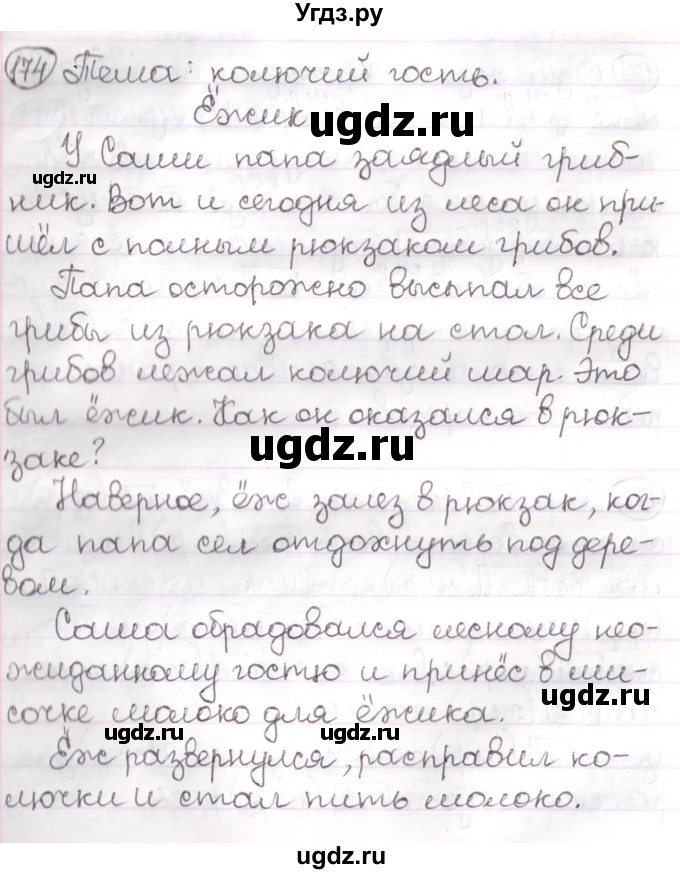 Угдз.ру
174 Тема: колючий гость.
Ёжик.
ugdz.ru
У Саши папа заядлый гриб-
ugdz.ru
ник. Вот и сегодня из леса он при-
шёл с полным рюкзаком грибов.
Папа осторожно высыпал все
грибы из рюкзака на стол. Среди
грибов лежал колючий шар. Это
был ёжик. Как он оказался в рюк-
ugdz.ru
заке?
Наверное, ёж залез в рюкзак, ког-
да папа сел отдохнуть под дере-
вом.
Саша обрадовался лесному нео-
жиданному гостю и принёс в ми-
ugdz.ru
сочке молоко для ёжика.
ugdz.ru ugdz.ru
Ёж развернулся, расправил ко-
лючки и стал пить молоко.
ugdz.ru